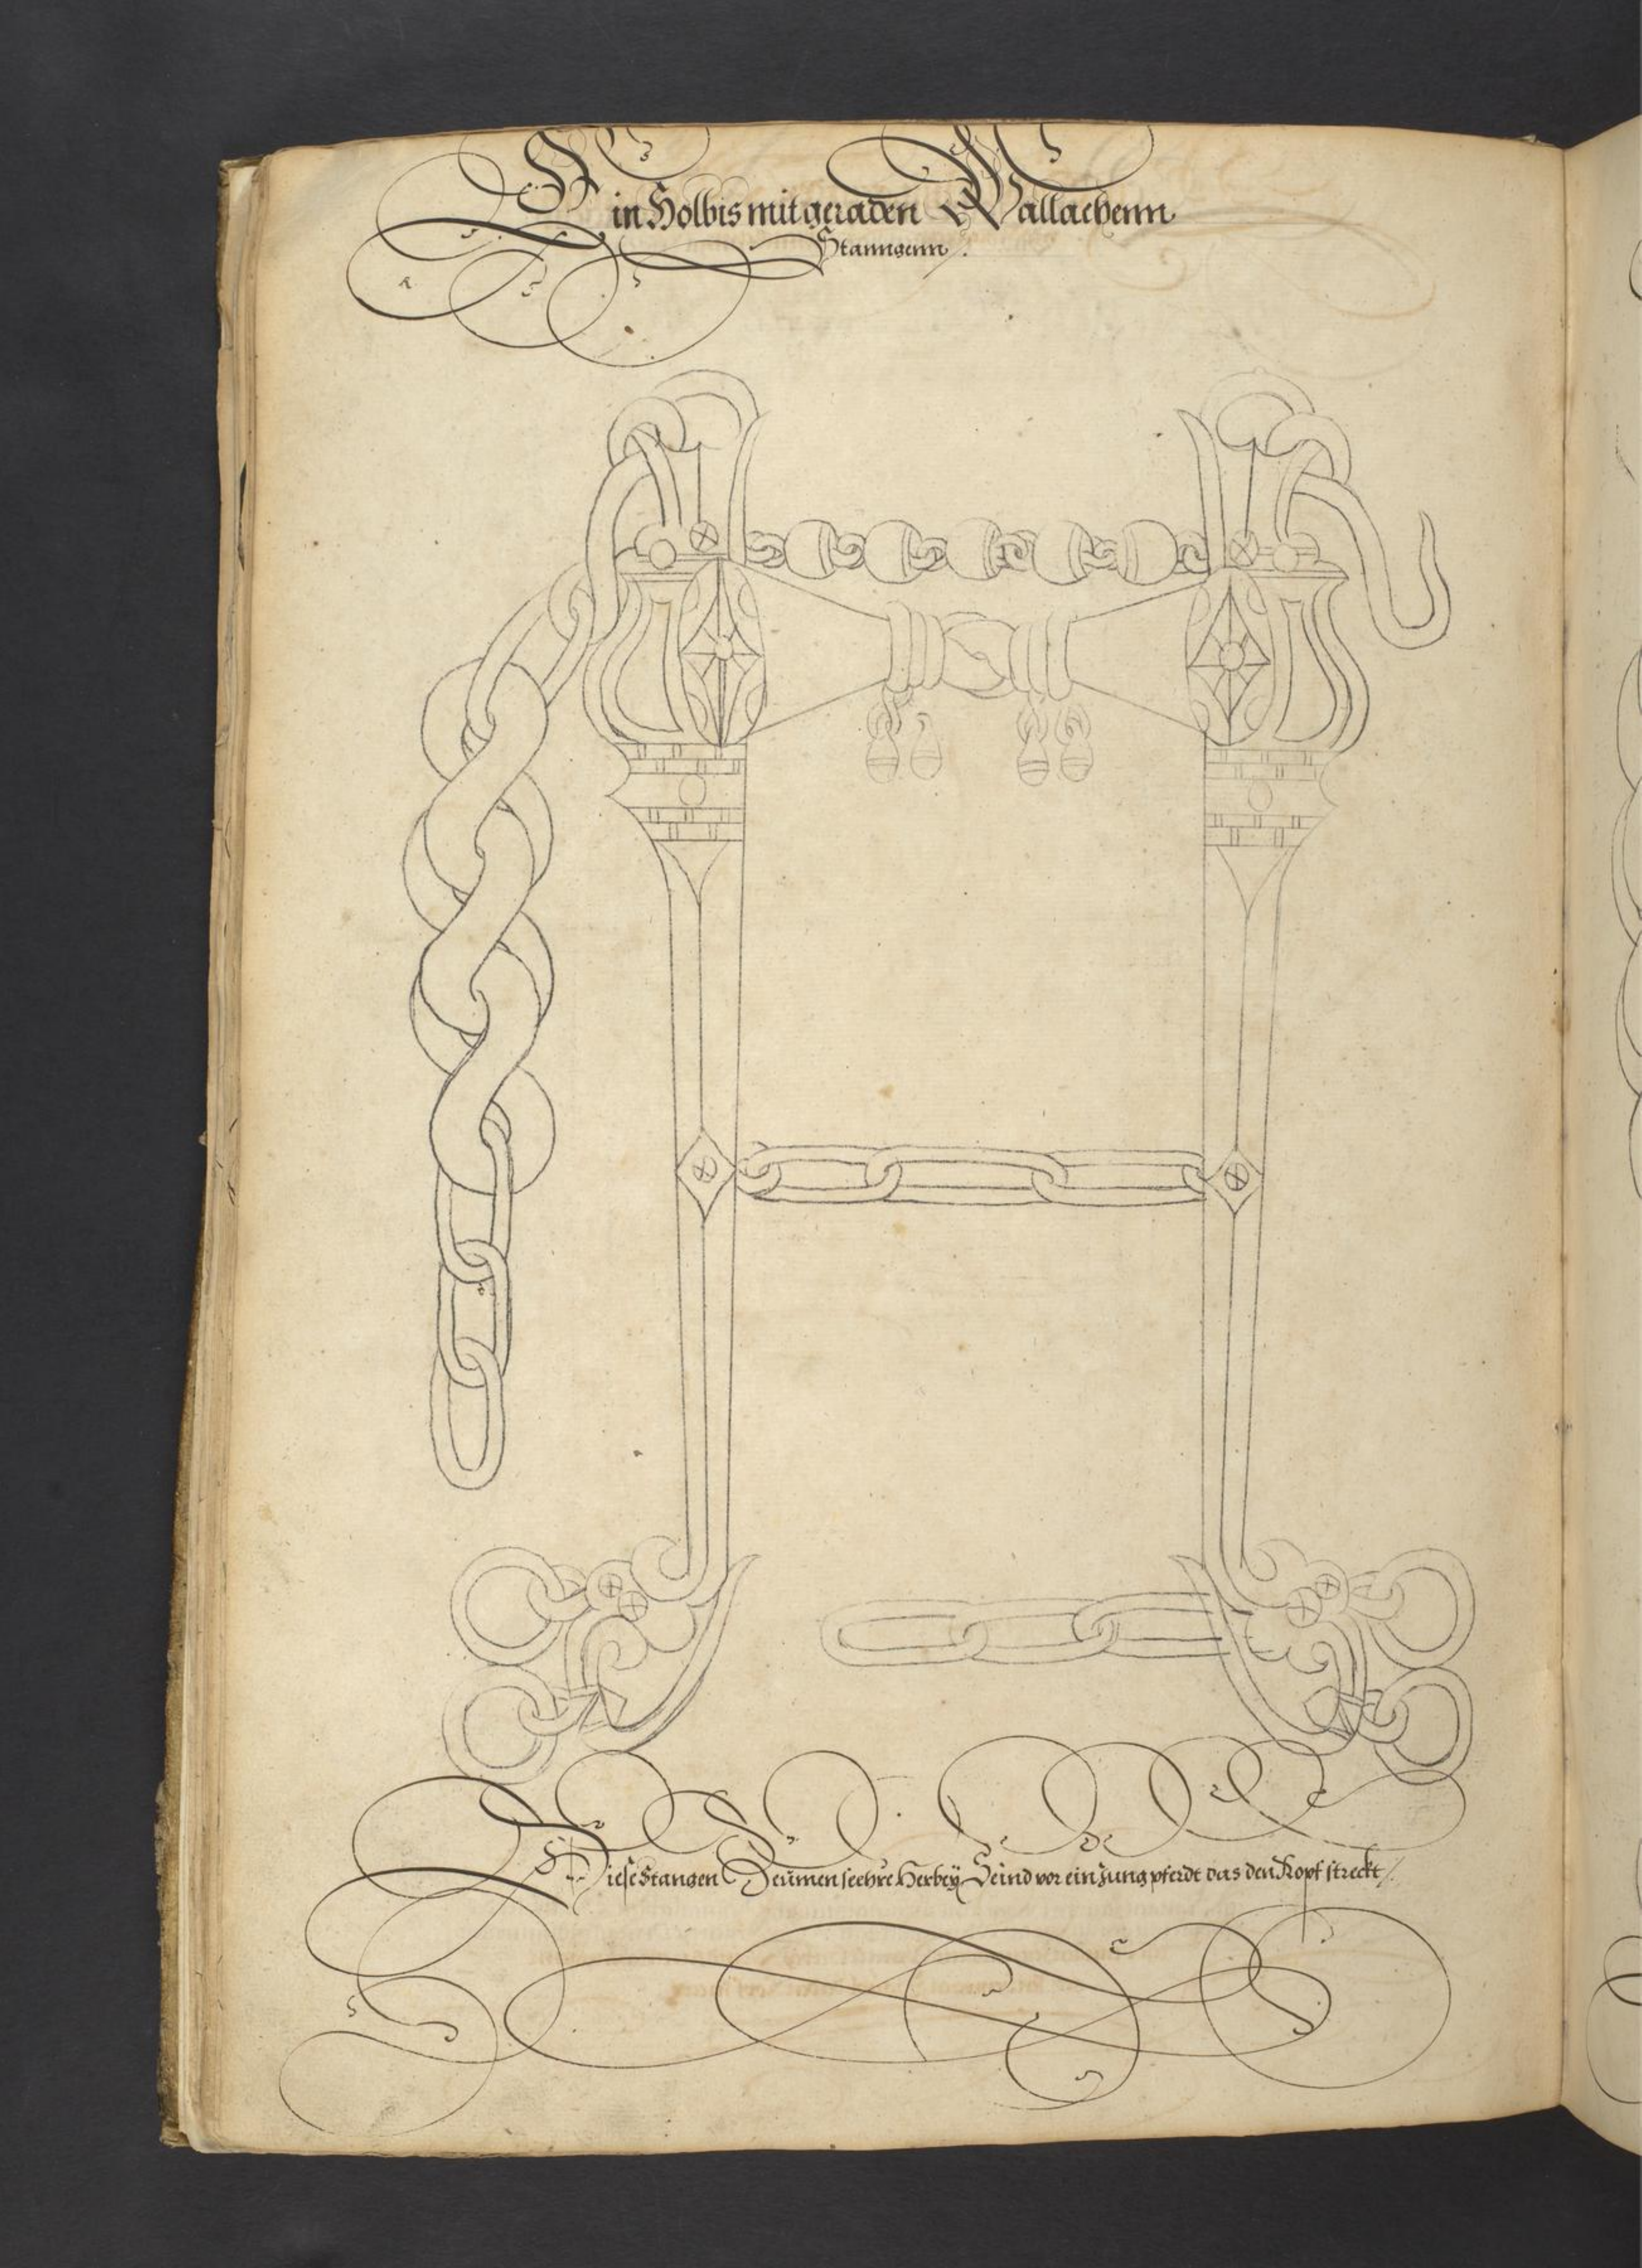 Ein Holbis mit geraden Wallachenn
Stanngenn /.
Diese Stangen Zeumen seehre Herbeÿ Seind vor ein Jung pferdt das den Kopf streckt /.